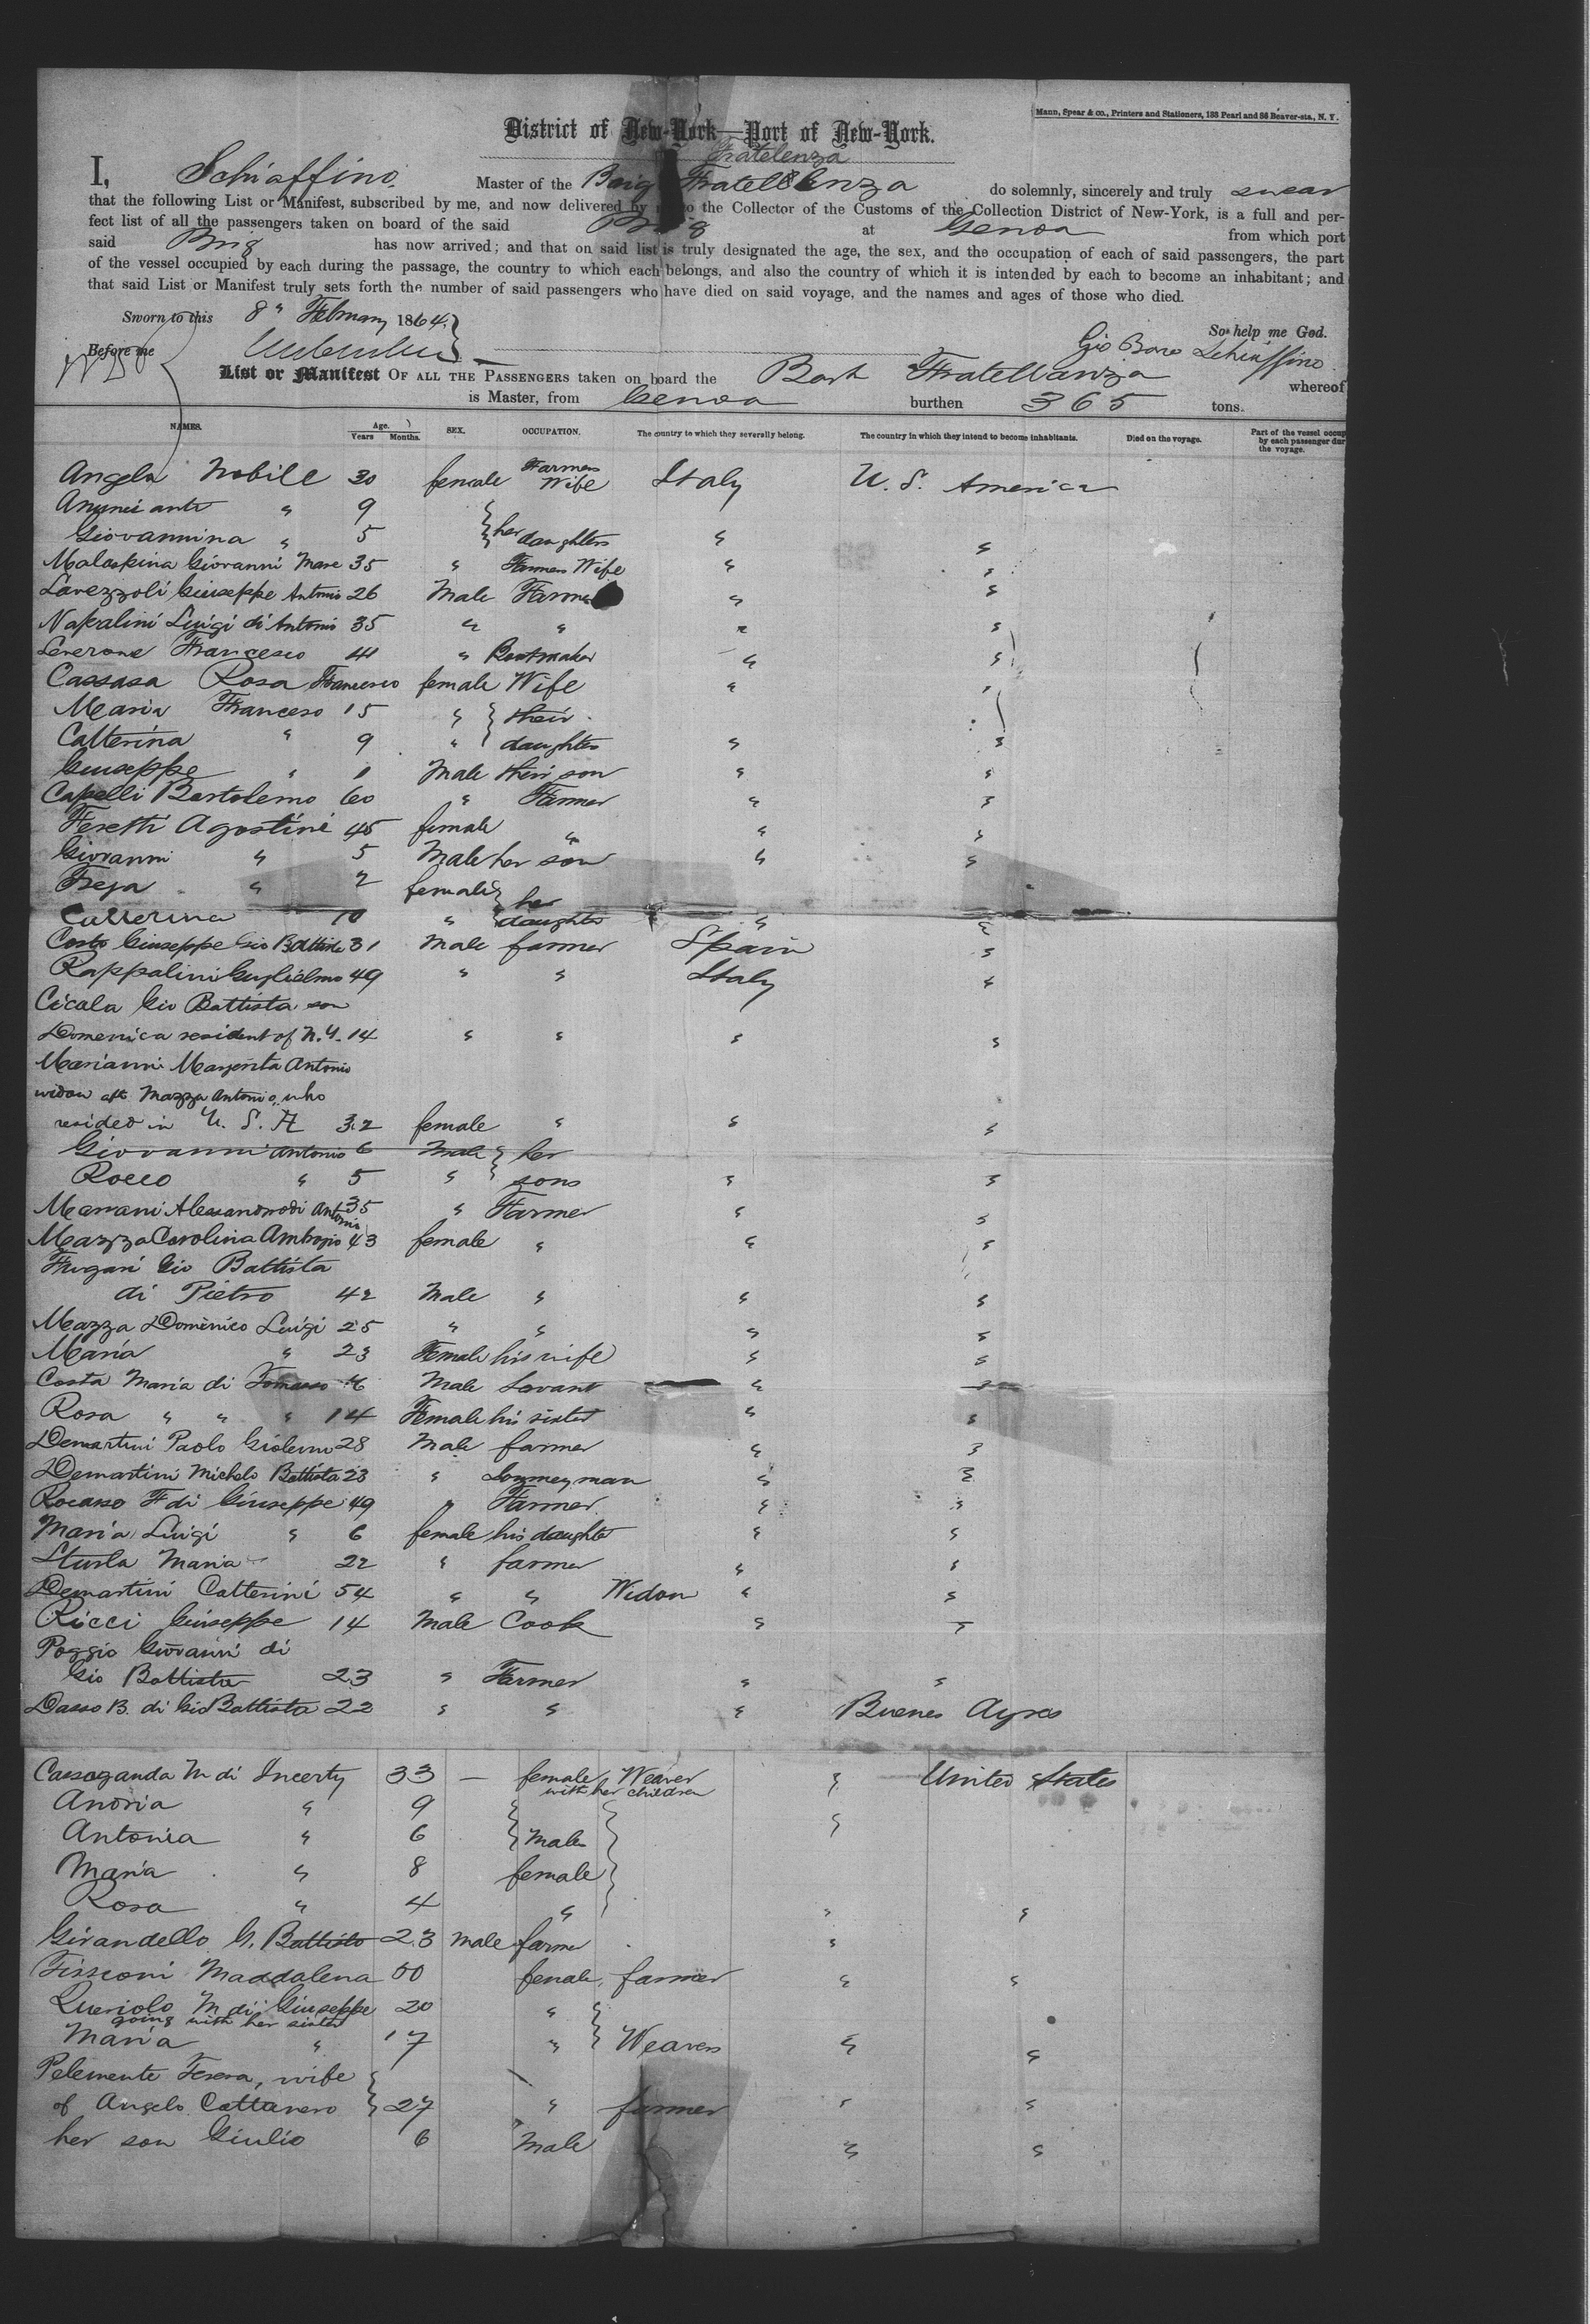 Mann, Spear & Co., Printers and Stationers, 188 Pearl and 86 Beaver-sts., N. Y.
District of New-York—Port of New-York.
Fratelenza
I, Schiaffino Master of the Brig Fratellenza do solemnly, sincerely and truly swear
that the following List or Manifest, subscribed by me, and now delivered by me to the Collector of the Customs of the Collection District of New-York, is a full and per-
fect list of all the passengers taken on board of the said Brig at Genoa from which port
said Brig has now arrived; and that on said list is truly designated the age, the sex, and the occupation of each of said passengers, the part
of the vessel occupied by each during the passage, the country to which each belongs, and also the country of which it is intended by each to become an inhabitant; and
that said List or Manifest truly sets forth the number of said passengers who have died on said voyage, and the names and ages of those who died.
Sworn to this 8" February 1864. So help me God.
Before me Gio Schiaffino
List or Manifest OF ALL THE PASSENGERS taken on board the Bark Fratellanza whereof
is Master, from Genoa burthen 365 tons.
NAMES. Age. Years Months. SEX. OCCUPATION. The country to which they severally belong. The country in which they intend to become inhabitants. Died on the voyage. Part of the vessel occup by each passenger dur the voyage.
Angela Nobile 30 female Farmers Wife Italy U. S. America
" 9
Giovannina " 5 } her daughters " "
Malaspina Giovanni Mare 35 " Farmers Wife " "
Lavezzoli Giuseppe Antonio 26 Male Farmer " "
Napalini Luigi di Antonio 35 " " " "
Leverone Francesco 41 " Bootmaker " "
Cassasa Rosa Francesco female Wife " "
Maria Franceso 15 " } their
Catterina " 9 " } daughters " "
Giuseppe " 1 Male their son " "
Capelli Bartolemo 60 " Farmer " "
Feretti Agostini 45 female " " "
Giovanni " 5 Male her son " "
" 2 female } her
Catterina 10 " } daughters " "
Costo Giuseppe Gio Battista 31 Male farmer Spain "
Rappalini Guglielmo 49 " " Italy "
Cicala Gio Battista son
Domenica resident of N. Y. 14 " " " "
Marianni Margerita Antonio
widow of Mazza Antonio, who
resided in U. S. A 32 female " " "
Giovanni Antonio 6 Male } her
Rocco " 5 " } sons " "
Marrani Alessandro di Antonio 35 " Farmer " "
Mazza Carolina Ambrogio 43 female " " "
Frugari Gio Battista
di Pietro 42 Male " " "
Mazza Domenico Luigi 25 " " " "
Maria " 23 Female his wife " "
Costa Maria di Tomasso Male Servant " "
Rosa " " " 14 Female his sister " "
Demartini Paolo 28 Male farmer " "
Demartini Michele Battista 23 " Journeyman " "
Rocasso F di Giuseppe 49 " Farmer " "
Maria Luigi " 6 female his daughter " "
Sturla Maria 22 " farmer " "
Demartini Catterini 54 " " Widow " "
Ricci Giuseppe 14 Male Cook " "
Poggio Giovanni di
Gio Battista 23 " Farmer " "
Dasso B. di Gio Battista 22 " " " Buenes Ayres
Cassaganda M di Incerty 33 — female Weaver " United States
with her children
Andria " 9
Antonia " 6 } Males "
Maria " 8 female
Rosa " 4 " " "
Girandello G. Battisto 23 male farmer "
Maddalena 50 female, farmer " "
Queriolo M di Giuseppe 20 "
going with her sister
Maria " 17 " } Weavers " "
Pelemente Teresa, wife
of Angelo Cattanero } 27 " farmer " "
her son Giulio 6 Male " "